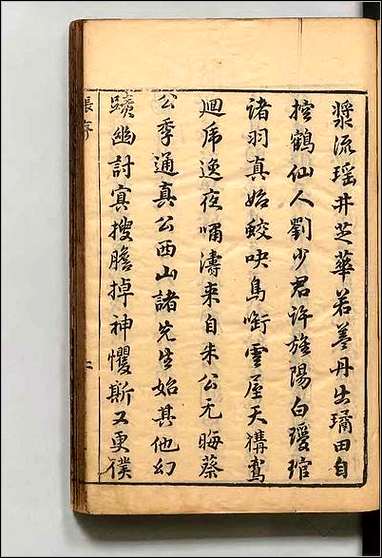 漿流瑶井芝華若蓋丹生璚田自
控鶴仙人劉少君許旌陽白瓊琯
諸羽真始鮫吷鳥銜雲屋天搆鸞
廻席逸夜嘯濤来自朱公元晦蔡
公季通真公西山諸先生始其他幻
蹟幽討冥搜膽掉神懼斯又更僕
張序
二